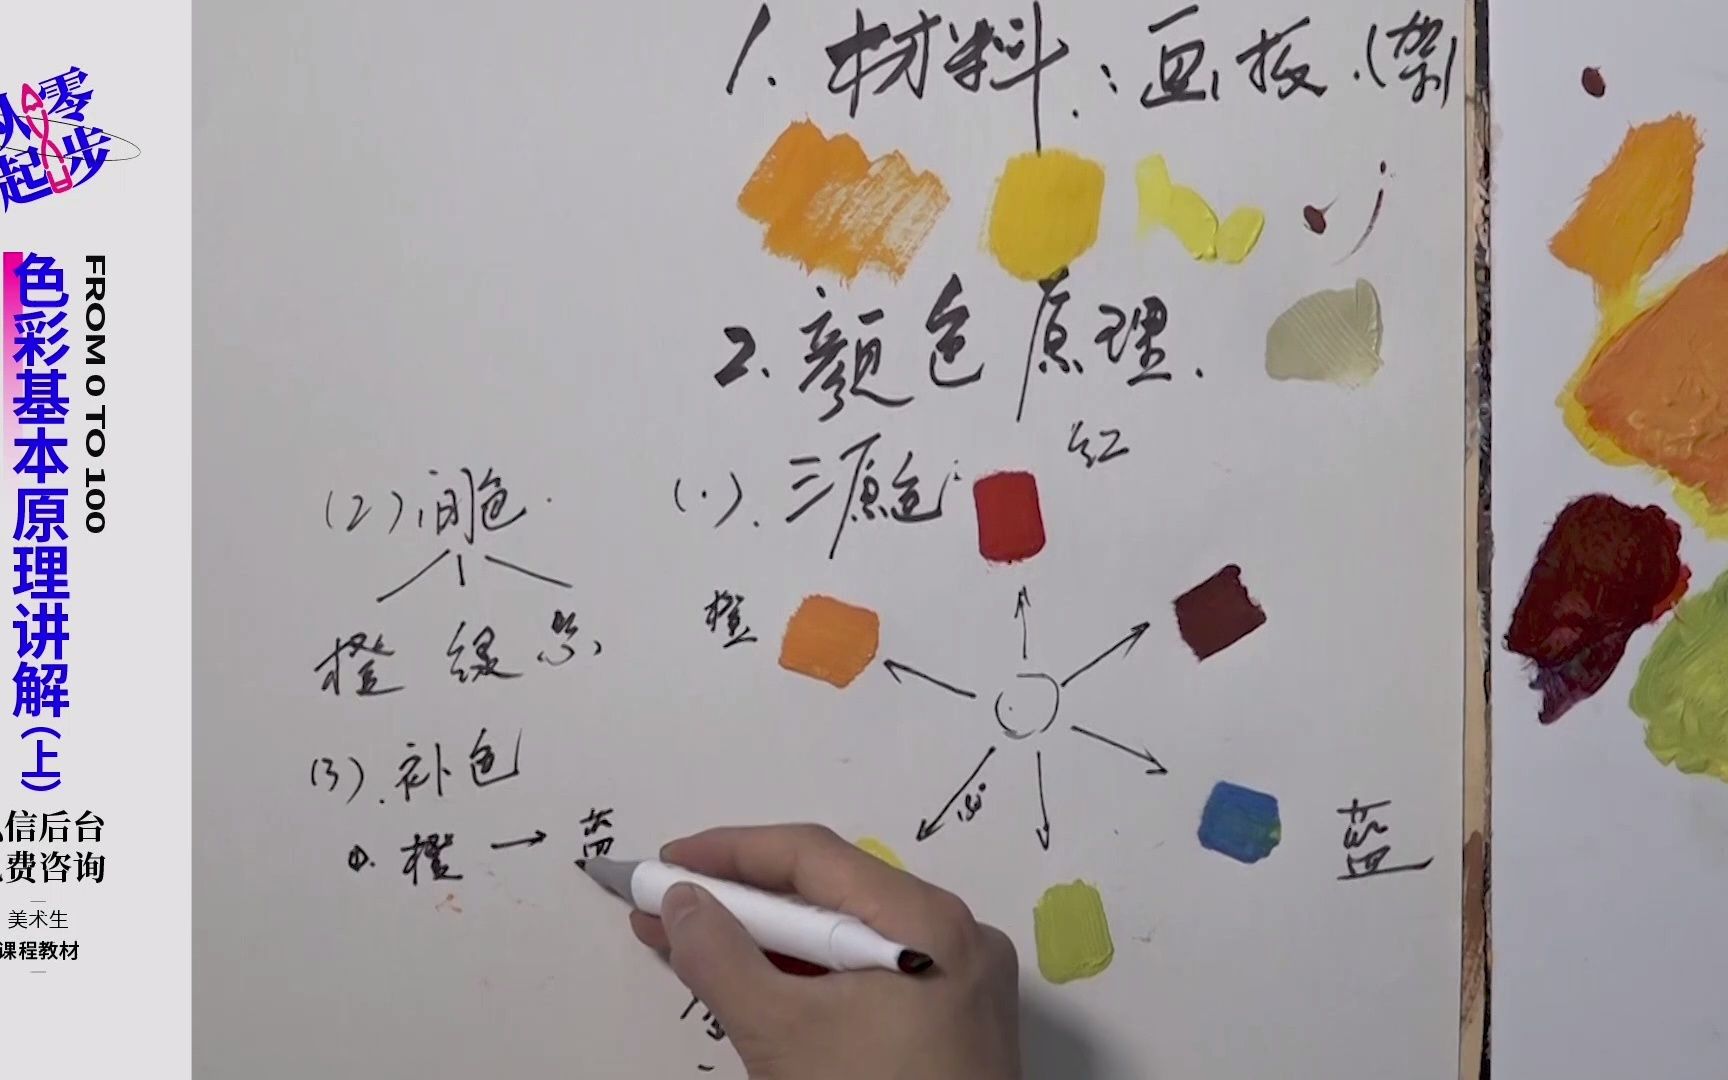 从零
起步
FROM 0 TO 100
色彩基本原理讲解(上)
信后台
费咨询
美术生
课程教材
1. 材料:画板.(架)
2. 颜色原理.
(1). 三原色:
红
(2) 间色.
橙 绿 紫
橙
(3). 补色
①. 橙 → 蓝
蓝